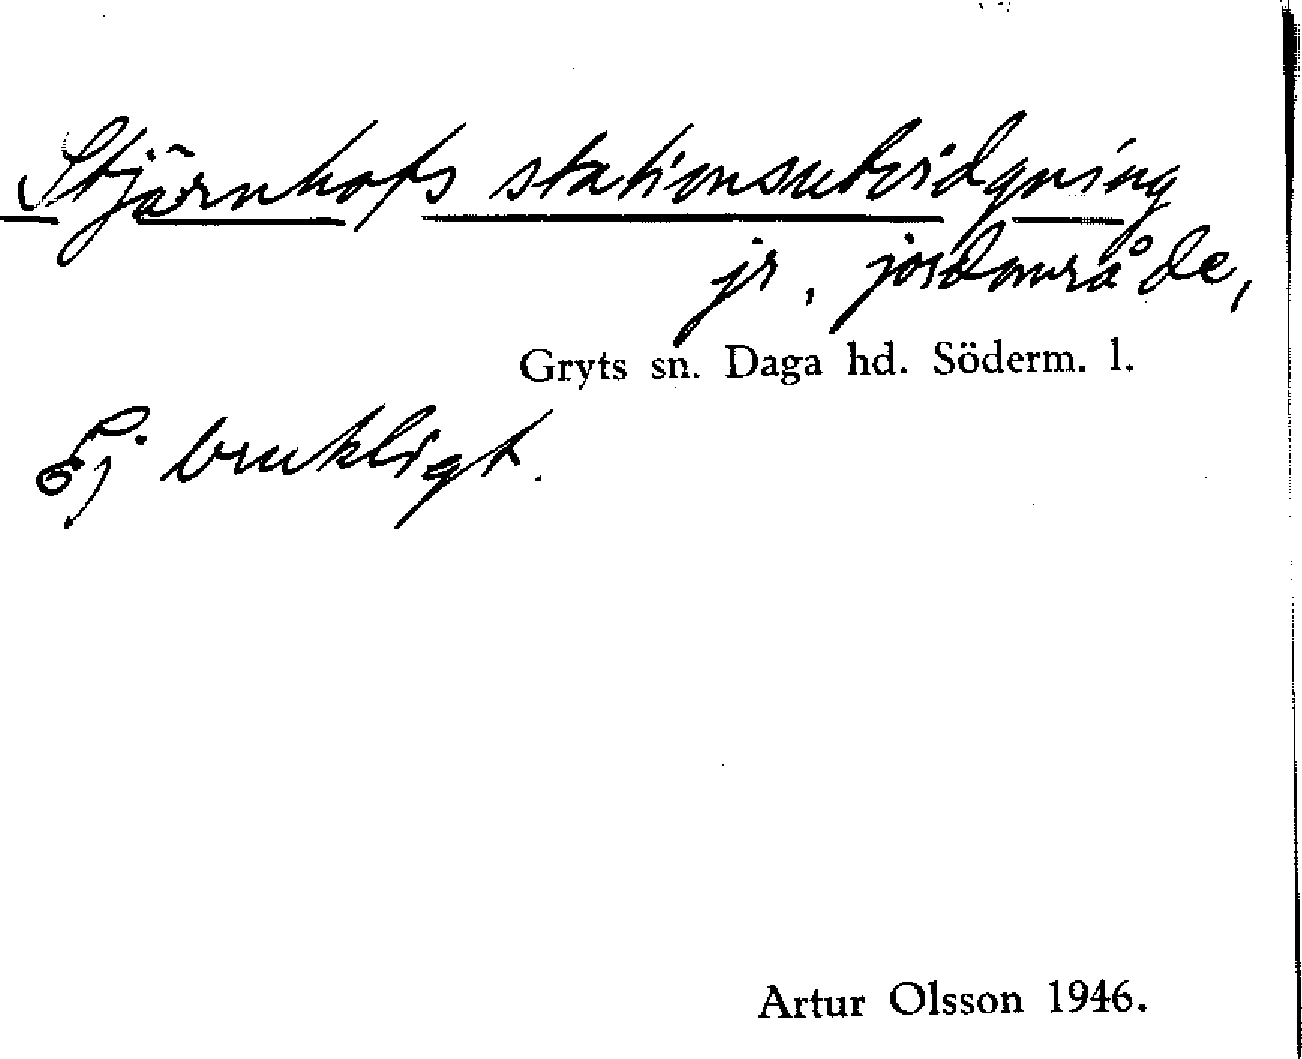 Stjärnhofs stationsutvidgning
jr, jordområde,
Gryts sn. Daga hd. Söderm. l.
Ej brukligt.
Artur Olsson 1946.